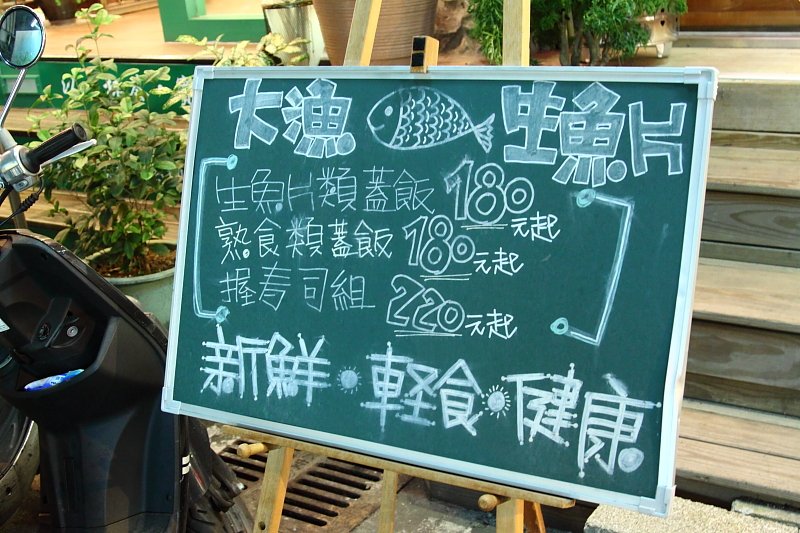 大漁 生魚片
生魚片類蓋飯 180元起
熟食類蓋飯 180元起
握寿司組 220元起
新鮮·軽食·健康